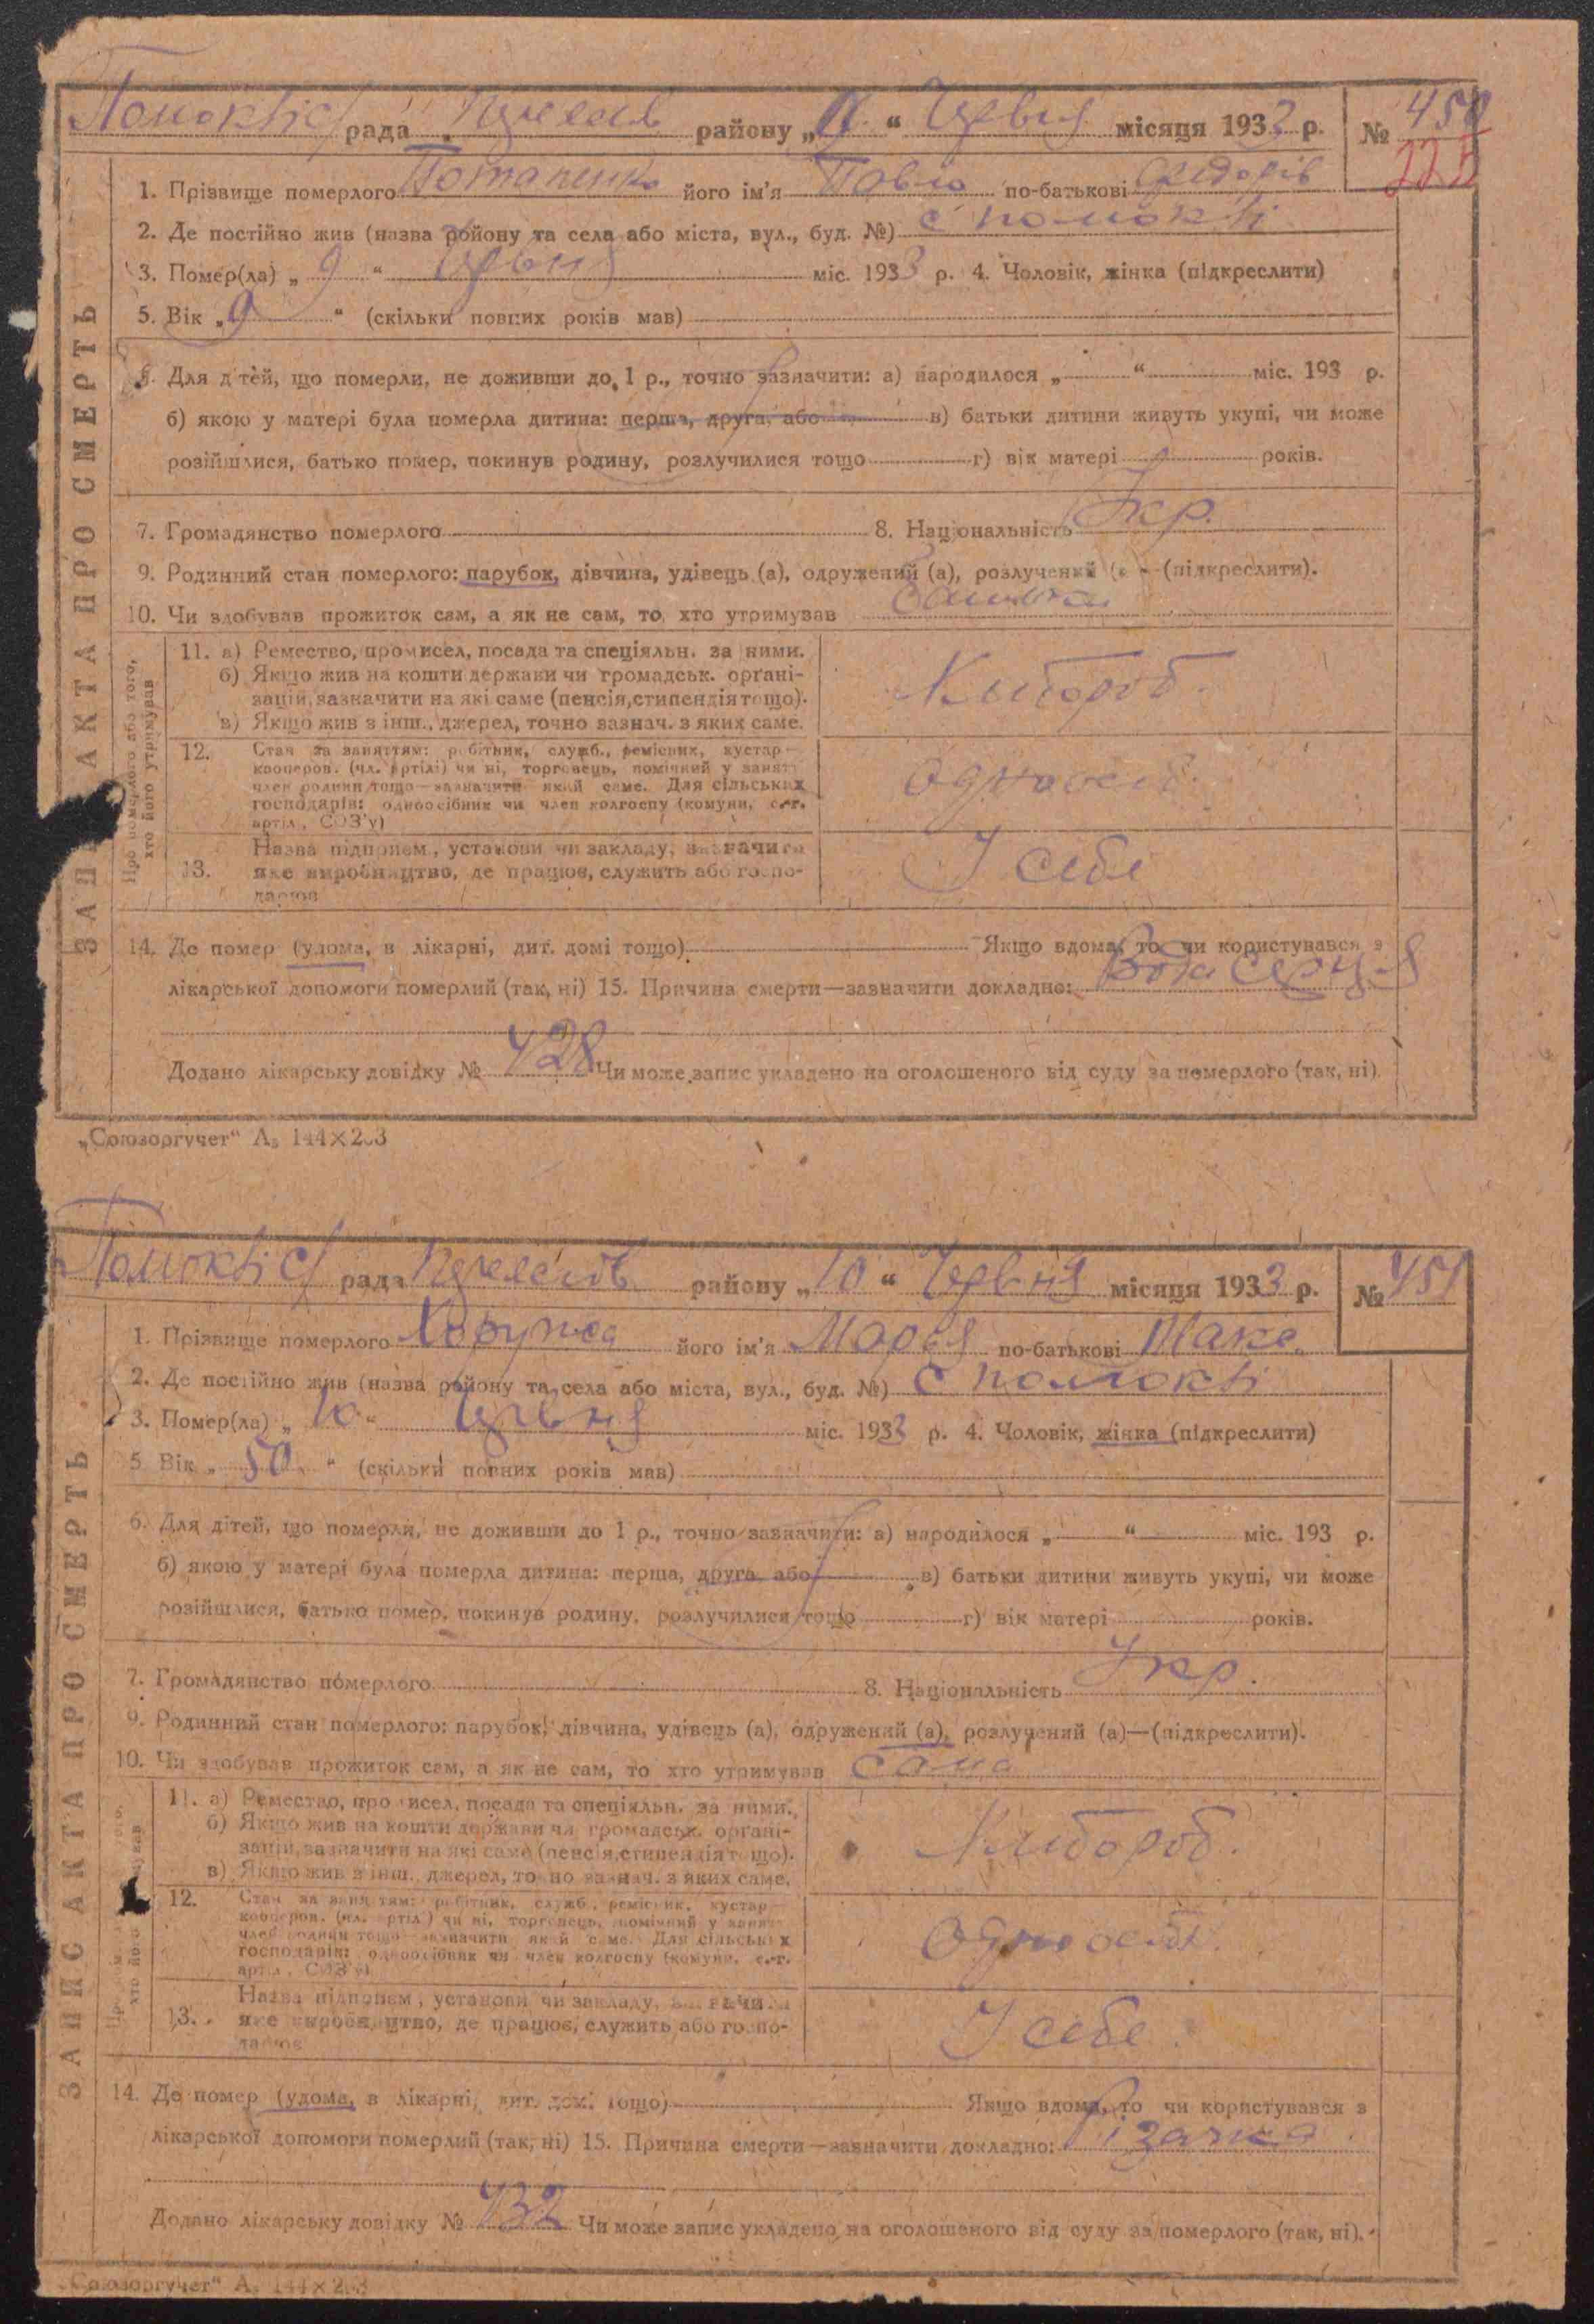 Помоклі с/ рада Переясл району „9“ Червня місяця 1933 р. № 450
225
ЗАПИС АКТА ПРО СМЕРТЬ
1. Прізвище померлого Потапенко його ім'я Павло по-батькові Федорів
2. Де постійно жив (назва району та села або міста, вул., буд. №) с Помоклі
3. Помер(ла) „ 9 “ Червня міс. 1933 р. 4. Чоловік, жінка (підкреслити)
5. Вік „9“ (скільки повних років мав)
6. Для дітей, що померли, не доживши до 1 р., точно зазначити: а) народилося „ “ міс. 193 р.
б) якою у матері була померла дитина: перша, друга, або в) батьки дитини живуть укупі, чи може
розійшлися, батько помер, покинув родину, розлучилися тощо г) вік матері років.
7. Громадянство померлого 8. Національність Укр.
9. Родинний стан померлого: парубок, дівчина, удівець (а), одружений (а), розлучений (а) — (підкреслити).
10. Чи здобував прожиток сам, а як не сам, то, хто утримував
Про померлого або того, хто його утримував
11. а) Ремество, промисел, посада та спеціяльн. за ними.
б) Якщо жив на кошти держави чи громадськ. орґані-
зацій, зазначити на які саме (пенсія, стипендія тощо).
в) Якщо жив з інш., джерел, точно зазнач. з яких саме.
Хлібороб.
12. Стан за заняттям: робітник, служб., ремісник, кустар—
кооперов. (чл. артілі) чи ні, торговець, помічний у занят.
член родини тощо—зазначити який саме. Для сільських
господарів: одноосібник чи член колгоспу (комуни, с.-г.
артіл., СОЗ'у)
одноосіб.
13. Назва підприєм., установи чи закладу, зазначити
яке виробництво, де працює, служить або госпо-
дарює
У себе
14. Де помер (удома, в лікарні, дит. домі тощо) Якщо вдома, то чи користувався з
лікарської допомоги померлий (так, ні) 15. Причина смерти—зазначити докладно: Вада серця
Додано лікарську довідку № 428 Чи може запис укладено на оголошеного від суду за померлого (так, ні).
„Союзоргучет“ А₅ 144×203
Помоклі с/ рада Переяслів району „10“ Червня місяця 1933 р. № 451
ЗАПИС АКТА ПРО СМЕРТЬ
1. Прізвище померлого Хоружа його ім'я Марія по-батькові Макс.
2. Де постійно жив (назва району та села або міста, вул., буд. №) с Помоклі
3. Помер(ла) „ 10 “ Червня міс. 1933 р. 4. Чоловік, жінка (підкреслити)
5. Вік „ 50 “ (скільки повних років мав)
6. Для дітей, що померли, не доживши до 1 р., точно зазначити: а) народилося „ “ міс. 193 р.
б) якою у матері була померла дитина: перша, друга, або в) батьки дитини живуть укупі, чи може
розійшлися, батько помер, покинув родину, розлучилися тощо г) вік матері років.
7. Громадянство померлого 8. Національність Укр.
9. Родинний стан померлого: парубок, дівчина, удівець (а), одружений (а), розлучений (а)—(підкреслити).
10. Чи здобував прожиток сам, а як не сам, то хто утримував сама
11. а) Ремество, промисел, посада та спеціяльн. за ними.
б) Якщо жив на кошти держави чи громадськ. орґані-
зацій, зазначити на які саме (пенсія, стипендія тощо).
в) Якщо жив з інш., джерел, точно зазнач. з яких саме.
Хлібороб.
12. Стан за заняттям: робітник, служб., ремісник, кустар—
кооперов. (чл. артіл.) чи ні, торговець, помічний у занят.
член родини тощо—зазначити який саме. Для сільських
господарів: одноосібник чи член колгоспу (комуни, с.-г.
артіл., СОЗ'у)
одноосіб.
13. Назва підприєм., установи чи закладу, зазначити
яке виробництво, де працює, служить або госпо-
дарює
У себе.
14. Де помер (удома, в лікарні, дит. домі тощо) Якщо вдома, то чи користувався з
лікарської допомоги померлий (так, ні) 15. Причина смерти—зазначити докладно: Різачка.
Додано лікарську довідку № 432 Чи може запис укладено на оголошеного від суду за померлого (так, ні).
„Союзоргучет“ А₅ 144×203